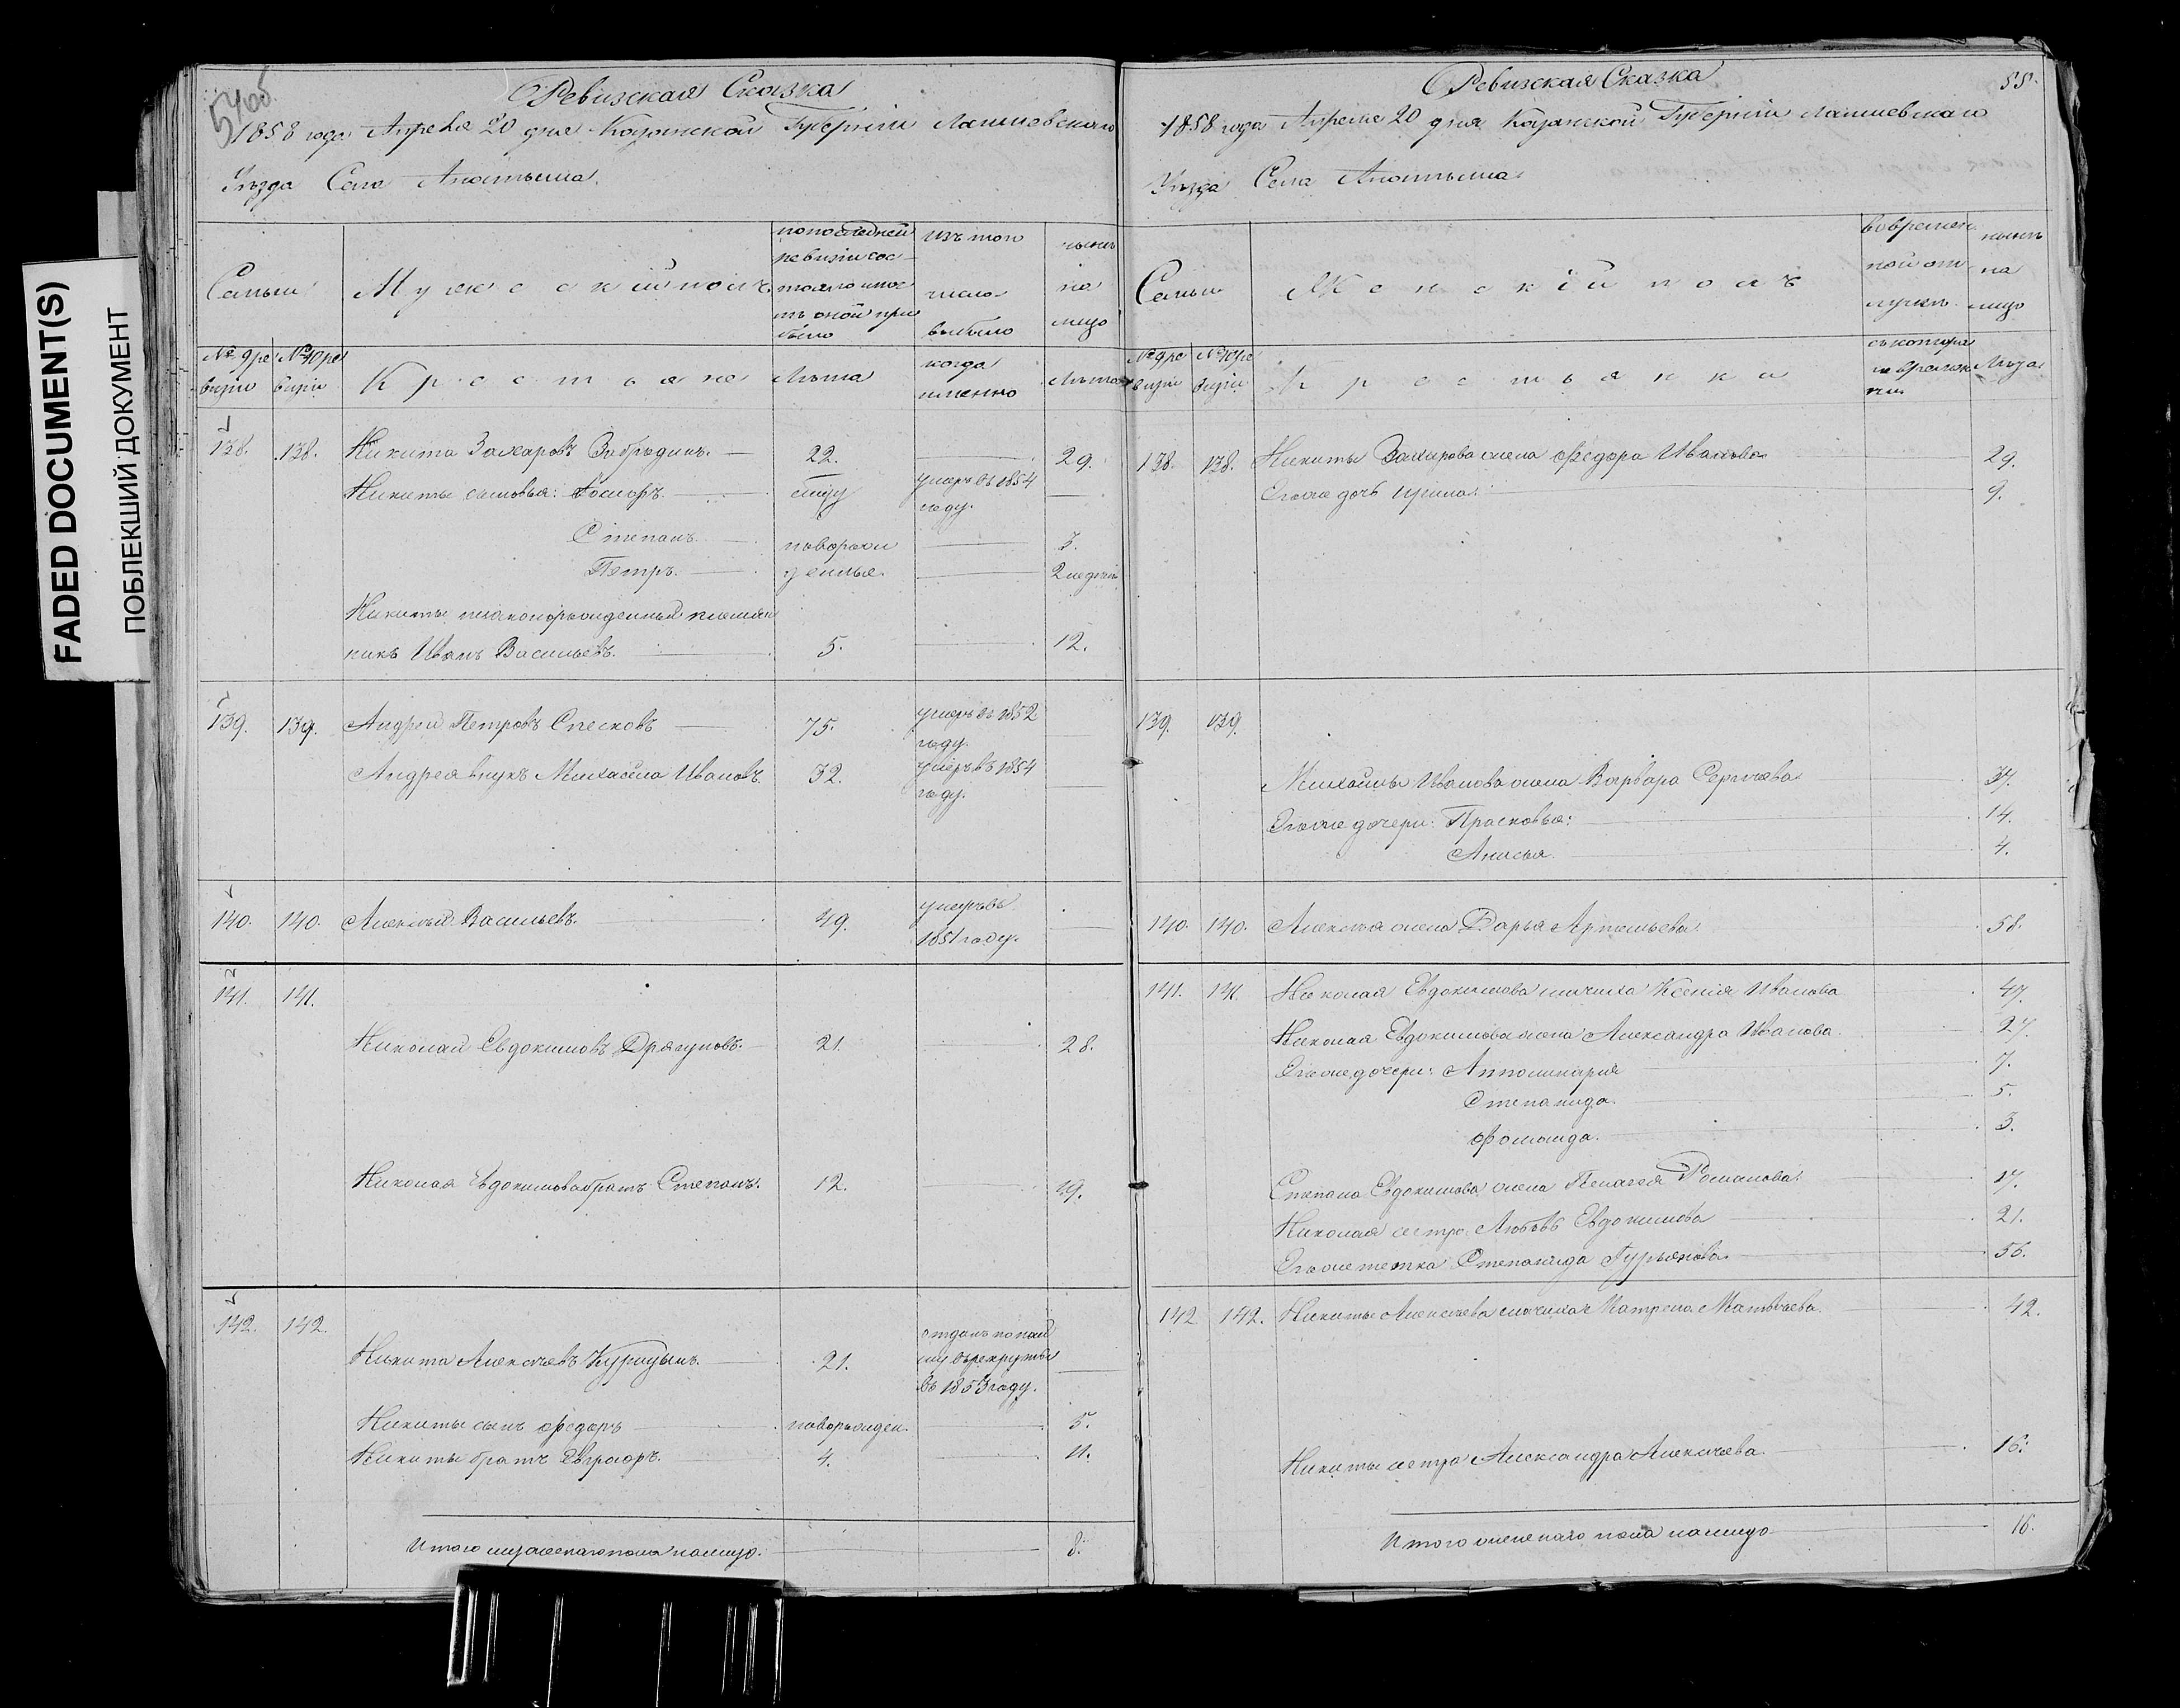 FADED DOCUMENT(S)
ПОБЛЕКШИЙ ДОКУМЕНТ
54об
Ревизская Сказка
1858 года Апреля 20 дня Казанской Губернiи Лаишевскаго
Уѣзда Села Анатыша.
Семьи
Мужескiй полъ
по последней ревизiи состояло и после оной прибыло
изъ того числа выбыло
нынѣ на лицо
№ 9 ревизiи
№ 10 ревизiи
Крестьяне
Лѣта
когда именно
Лѣта
138. 138. Никита Захаровъ Забродинъ. 22. 29.
Никиты сыновья: 6 умеръ въ 1854 году.
Степанъ. 3.
новорожденные
Петръ. 2 недели
Никиты незаконорожденный племянникъ Иванъ Васильевъ. 5. 12.
139. 139. Андрей Петровъ Спесковъ 75. умеръ въ 1852 году.
Андрея внукъ Михайла Ивановъ. 32. умеръ въ 1854 году.
140. 140. Алексѣй Васильевъ 49. умеръ въ 1851 году.
141. 141.
Николай Евдокимовъ Драгуновъ. 21. 28.
Николая Евдокимова братъ Степанъ. 12. 19.
142. 142.
Никита Алексѣевъ Курицынъ. 21. отданъ по найму въ рекруты въ 1853 году.
Никиты сынъ Федоръ новорожден. 5.
Никиты братъ Евграфъ. 4. 11.
Итого мужескаго пола налицо. 8.
55.
Ревизская Сказка
1858 года Апреля 20 дня Казанской Губернiи Лаишевскаго
Уѣзда Села Анатыша
Семьи
Женскiй полъ
во временной отлучкѣ
нынѣ на лицо
№ 9 ревизiи
№ 10 ревизiи
Крестьянки
съ котораго времени
Лѣта
138. 138. Никиты Захарова жена Федора Иванова 29.
Его же дочь Ирина 9.
139. 139.
Михайлы Иванова жена Варвара Сергѣева 37.
Его же дочери: Прасковья: 14.
Анисья. 4.
140. 140. Алексѣя жена Дарья Артемьева 58.
141. 141. Николая Евдокимова мачиха Ксенiя Иванова 47.
Николая Евдокимова жена Александра Иванова. 27.
Его же дочери: Апполинария 7.
Степанида. 5.
Фомаида. 3.
Степана Евдокимова жена Пелагея Романова 17.
Николая сестра Любовь Евдокимова 21.
Его же тетка Степанида Гурьянова 56.
142 142. Никиты Алексѣева мачиха Матрена Матвѣева. 42.
Никиты сестра Александра Алексѣева. 16.
Итого женскаго пола налицо 16.